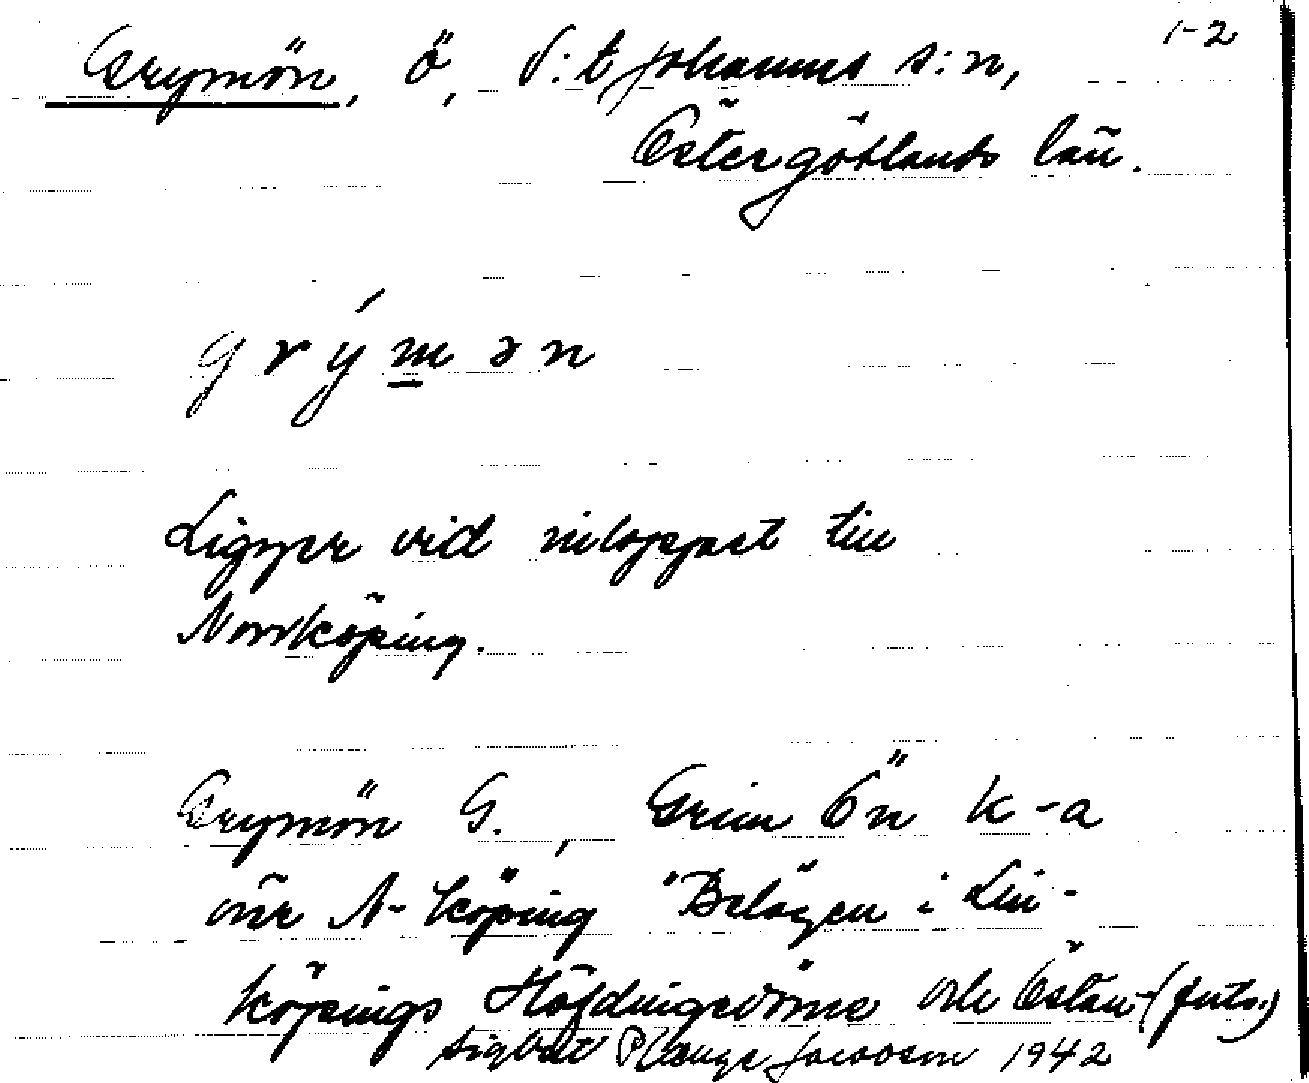 1-2
Grymön, ö, S:t Johannes s:n,
Östergötlands län.
grýmən
Ligger vid inloppet till
Norrköping.
Grymön G., Grim Ön k-a
över N-köping "Belägen i Lin-
köpings Höfdingedöme och Östan- (forts.)
Sigbrit Plænge Jacobson 1942